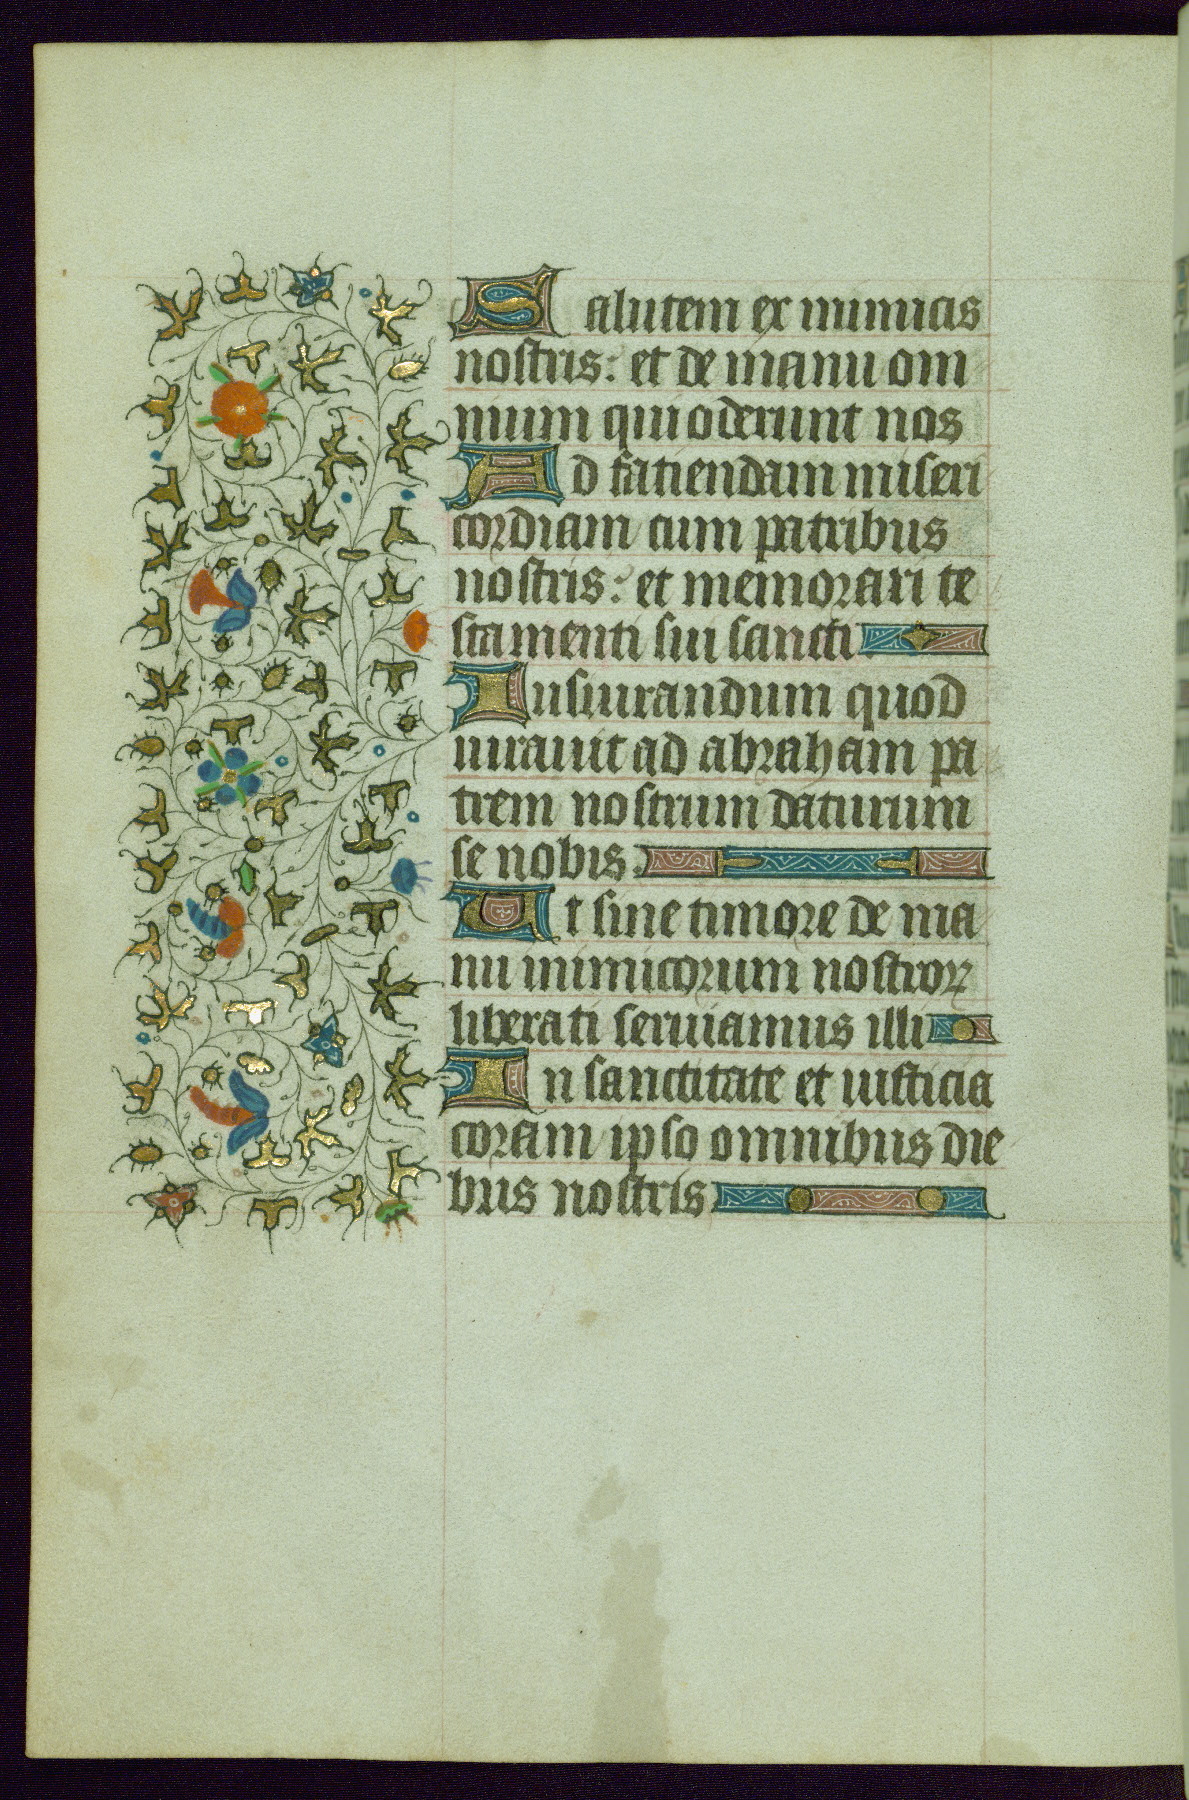 Salutem ex inimicis
nostris: et de manu om
nium qui oderunt nos
Ad fatiendam miseri
cordiam cum patribus
nostris: et memorari te
stamenti sui sancti
Iusiurandum quod
iurauit ad abraham pa
trem nostrum daturum
se nobis.
Ut sine timore de ma
nu inimicorum nostroꝝ
liberati seruiamus illi
In sanctitate et iusticia
coram ipso omnibus die
bus nostris